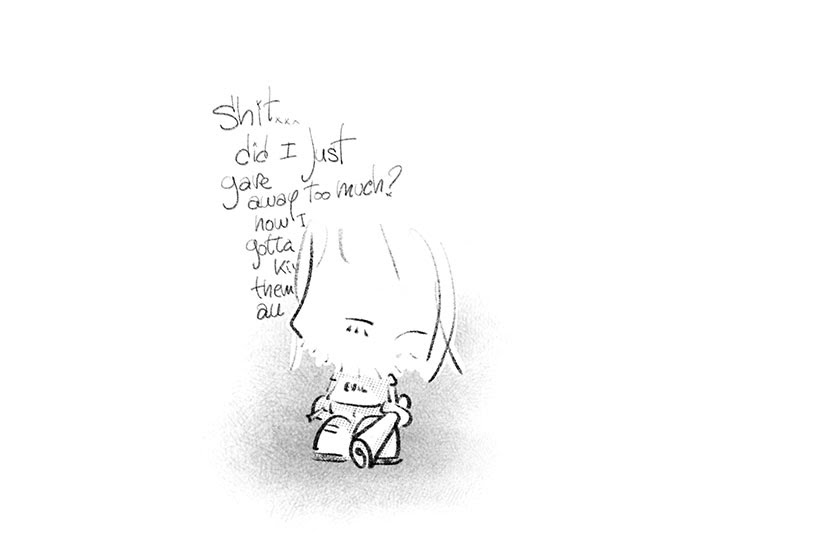 Shit...
did I Just
gave
away too much?
now I
gotta
them
all
EVIL